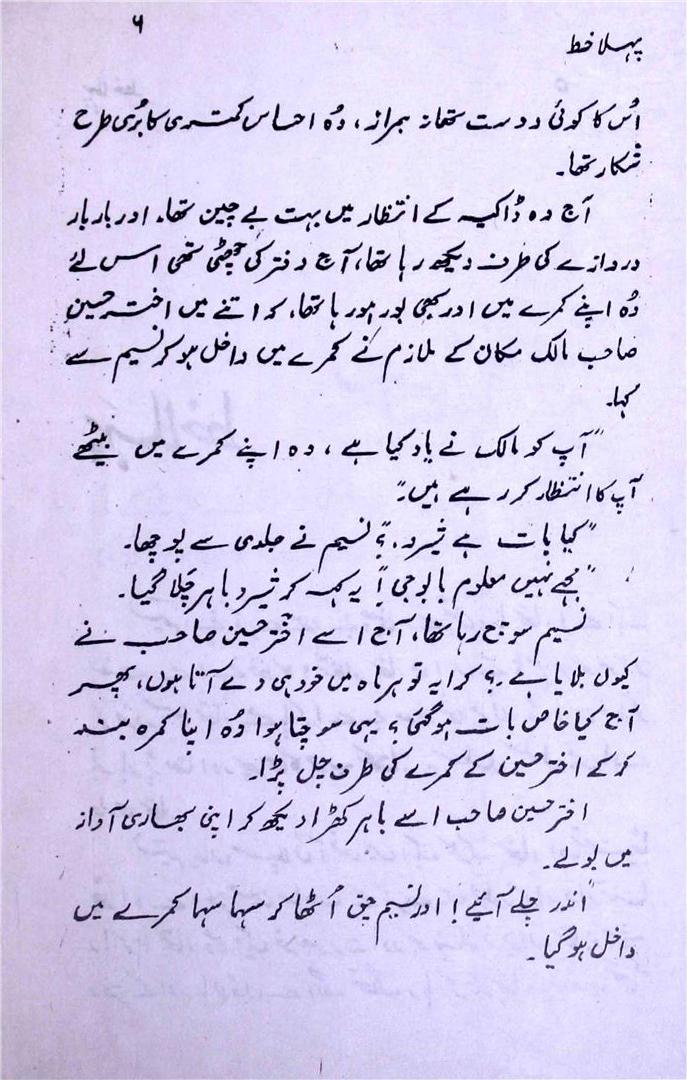 ۶
پہلا خط
اُس کا کوئی دوست تھا نہ ہمراز، وُہ احساس کمتری کا بُری طرح
شکار تھا۔
آج وہ ڈاکیہ کے انتظار میں بہت بے چین تھا۔ اور بار بار
دروازے کی طرف دیکھ رہا تھا، آج دفتر کی چھٹی تھی اس لئے
وُہ اپنے کمرے میں اور بھی بور ہو رہا تھا، کہ اتنے میں اختر حسین
صاحب مالک مکان کے ملازم نے کمرے میں داخل ہو کر نسیم سے
کہا۔
"آپ کو مالک نے یاد کیا ہے، وہ اپنے کمرے میں بیٹھے
آپ کا انتظار کر رہے ہیں۔"
"کیا بات ہے شیرو۔؟" نسیم نے جلدی سے پوچھا۔
"مجھے نہیں معلوم بابو جی" یہ کہہ کر شیرو باہر چلا گیا۔
نسیم سوچ رہا تھا، آج اسے اختر حسین صاحب نے
کیوں بلایا ہے۔؟ کرایہ تو ہر ماہ میں خود ہی دے آتا ہوں، پھر
آج کیا خاص بات ہو گئی؟ یہی سوچتا ہوا وُہ اپنا کمرہ بند
کر کے اختر حسین کے کمرے کی طرف چل پڑا۔
اختر حسین صاحب اسے باہر کھڑا دیکھ کر اپنی بھاری آواز
میں بولے۔
"اندر چلے آیئے! اور نسیم چق اُٹھا کر سہما سہما کمرے میں
داخل ہو گیا۔